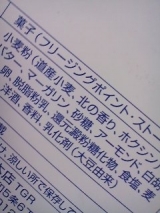 菓子(フリージングポイント・スト
小麦粉(道産小麦、北の香り、ホクシン
バター、マーガリン、砂糖、アーモンド、白
卵、脱脂粉乳、還元澱粉糖化物、食塩、
洋酒、香料、乳化剤(大豆由来)
涼しい所で保存し
店 TGR